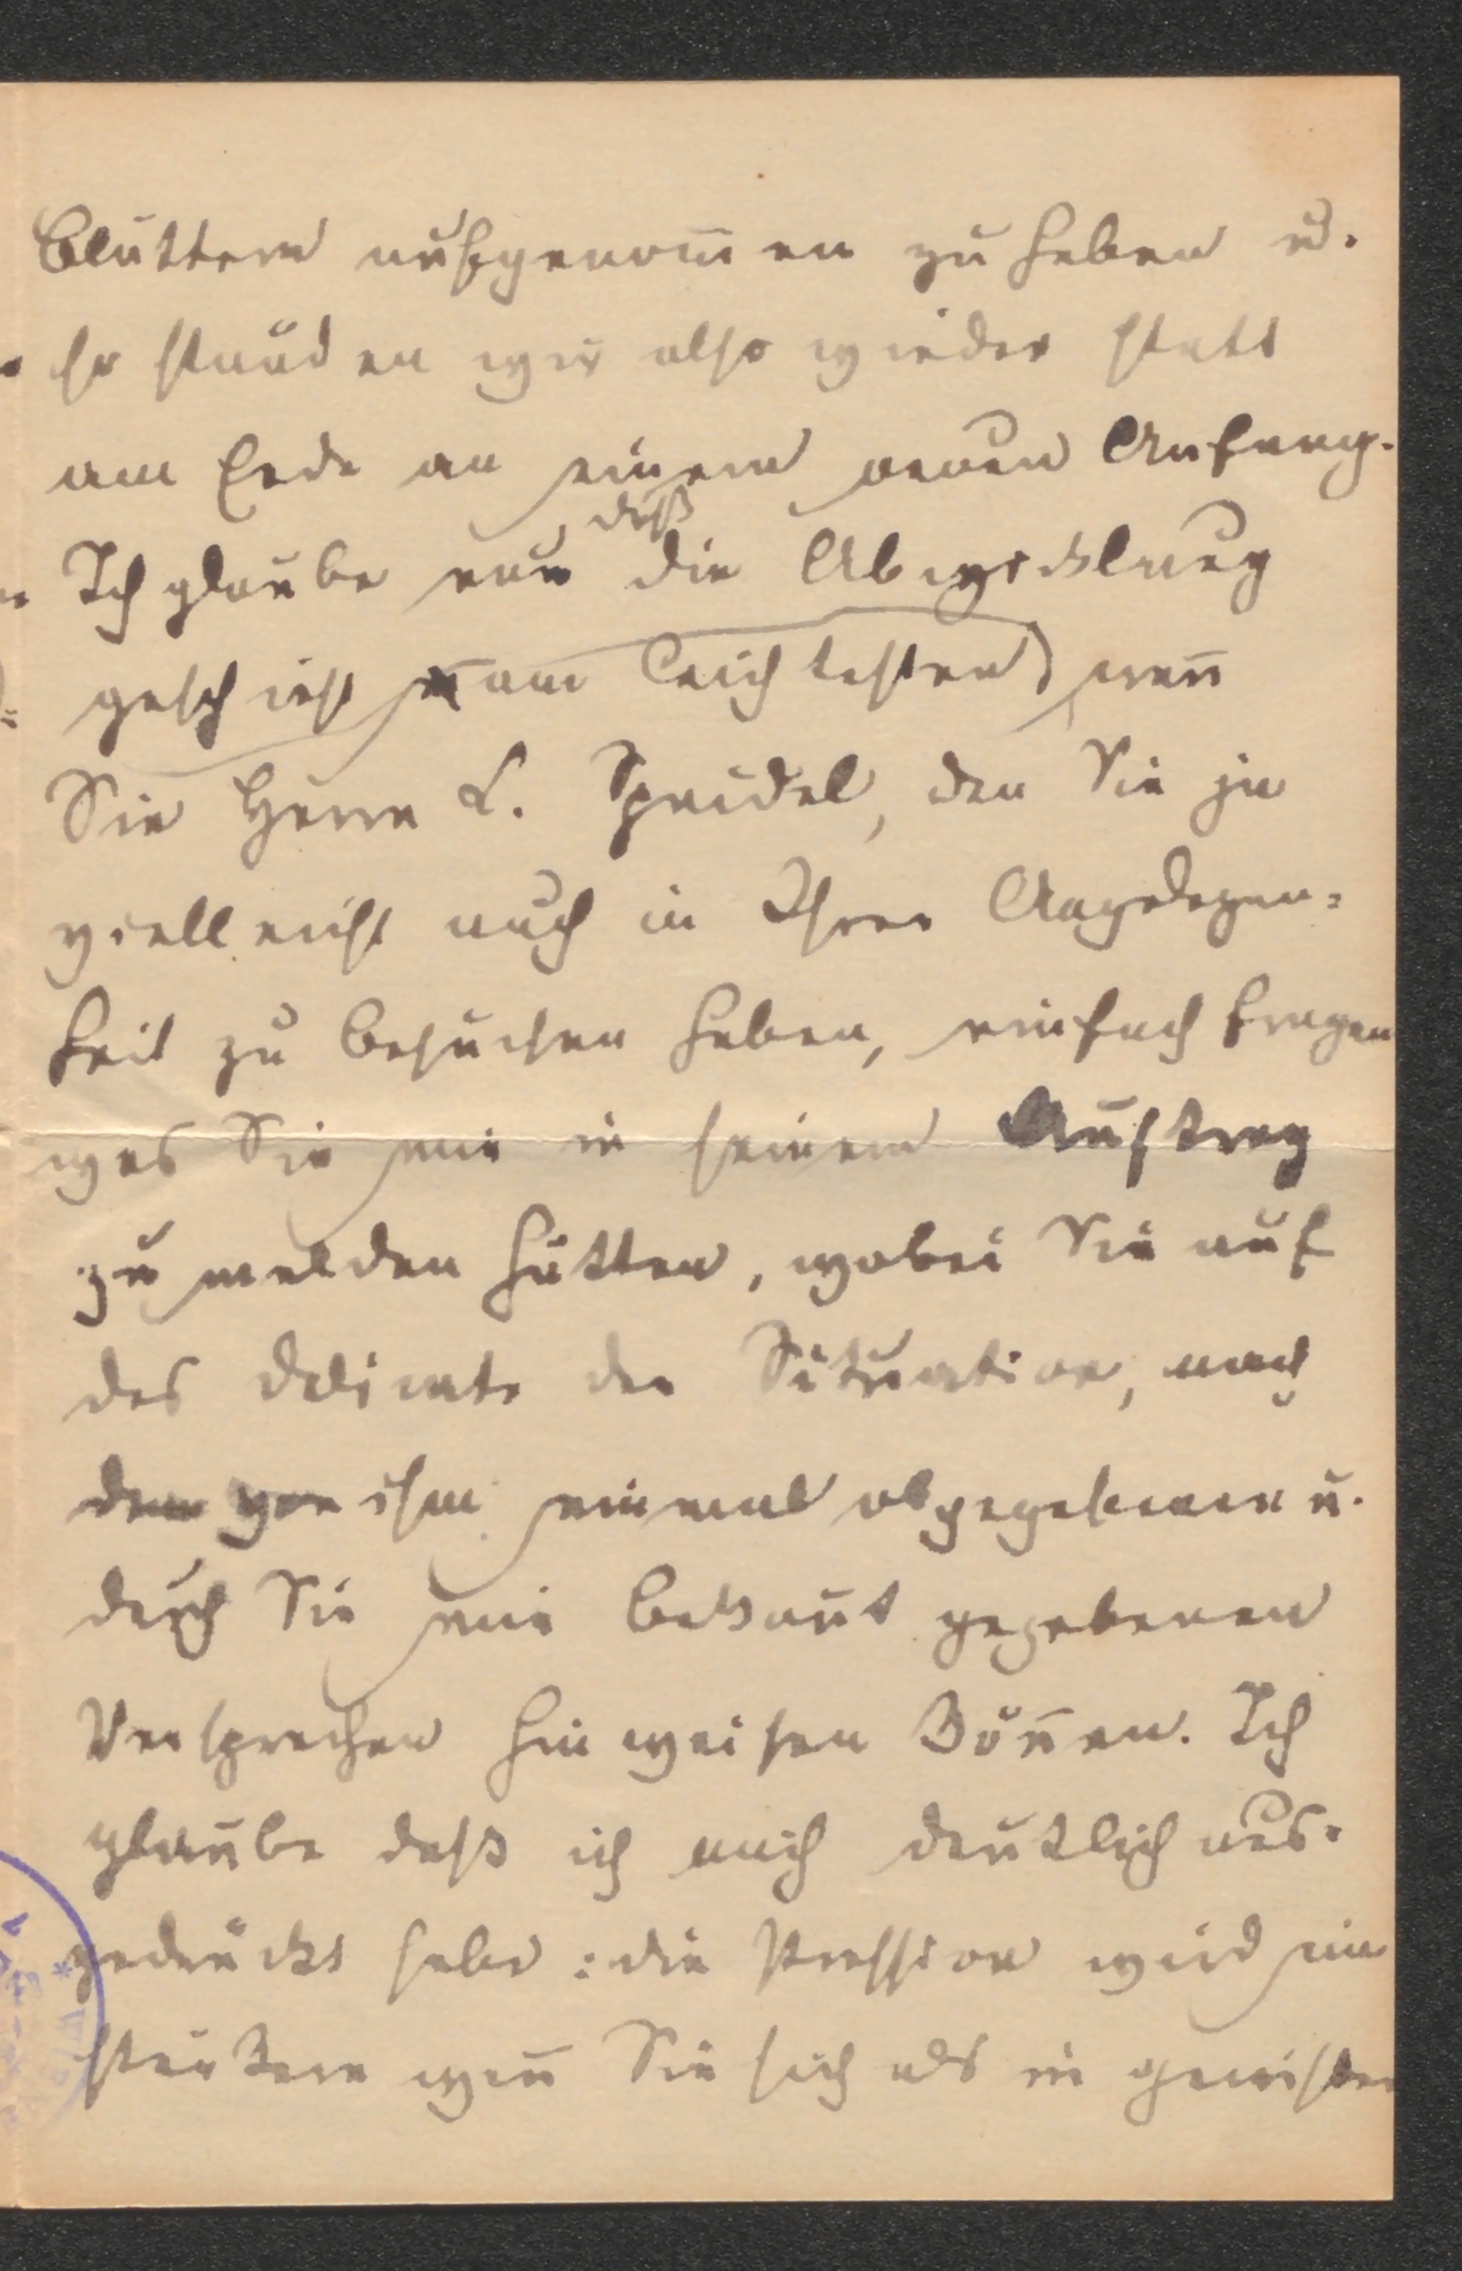 Blättern aufgenom̅en zu haben u.
so ständen wir also wieder statt
am Ende an einem neuen Anfang.
Ich glaube nun daß die Abwicklung
geschieht am leichtesten wen̅
Sie Herrn L. Speidel, den Sie ja
vielleicht auch in Ihrer Angelegen=
heit zu besuchen haben, einfach fragen
was Sie mir in seinem Auftrag
zu melden hätten, wobei Sie auf
das delicate der Situation, nach
dem von ihm einmal abgegebenen u.
durch Sie mir bekan̅t gegebenen
Versprechen hinweisen kön̅en. Ich
glaube daß ich mich deutlich aus-
gedrückt habe: die Pression wird eine
stärkere wen̅ Sie sich als in gewisser